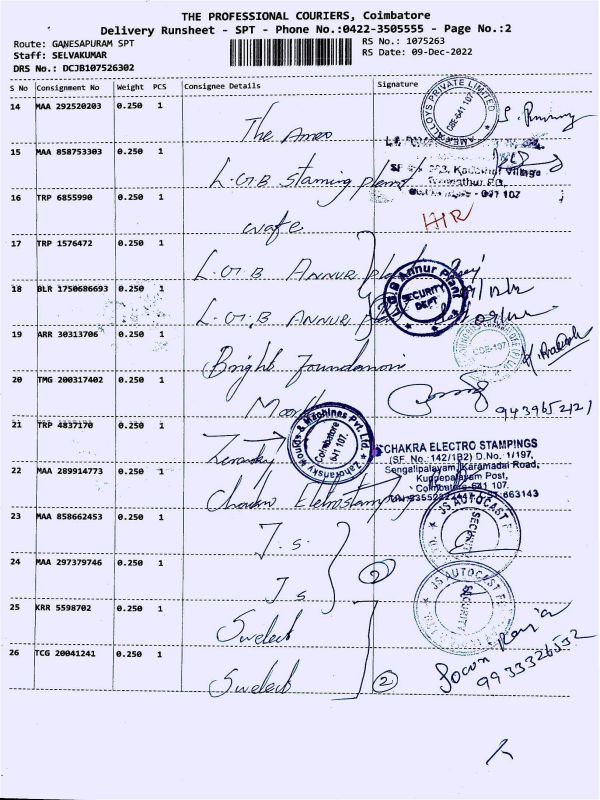 THE PROFESSIONAL COURIERS, Coimbatore
Delivery Runsheet - SPT - Phone No.:0422-3505555 - Page No.:2
Route: GANESAPURAM SPT
Staff: SELVAKUMAR
DRS No.: DCJB107526302
RS No.: 1075263
RS Date: 09-Dec-2022
S No Consignment No Weight PCS Consignee Details Signature
14 MAA 292520203 0.250 1
The Ameo
AMEX ALLOYS PRIVATE LIMITED
CBE-641 107
15 MAA 858753303 0.250 1
L.G.B staming plant
Village
641 107
16 TRP 6855990 0.250 1
wafe
HIR
17 TRP 1576472 0.250 1
L.G.B ANNUR plant
L.G.B Annur Plant
SECURITY DEPT
18 BLR 1750686693 0.250 1
L.G.B ANNUR
19 ARR 30313706 0.250 1
Bright Foundation
K. Prakash
20 TMG 200317402 0.250 1
9439652121
21 TRP 4837170 0.250 1
Zahoransky Moulds & Machines Pvt. Ltd.
Coimbatore
641 107.
CHAKRA ELECTRO STAMPINGS
(SF. No.: 142/1B2) D.No. 1/197,
Sengalipalayam, Karamadai Road,
Kuppepalayam Post,
Coimbatore-641 107.
22 MAA 289914773 0.250 1
23 MAA 858662453 0.250 1
J.s.
JS AUTOCAST
SECURITY
24 MAA 297379746 0.250 1
Js
2
JS AUTOCAST
SECURITY
25 KRR 5598702 0.250 1
Swelect
26 TCG 20041241 0.250 1
Swelect
2
9933326532